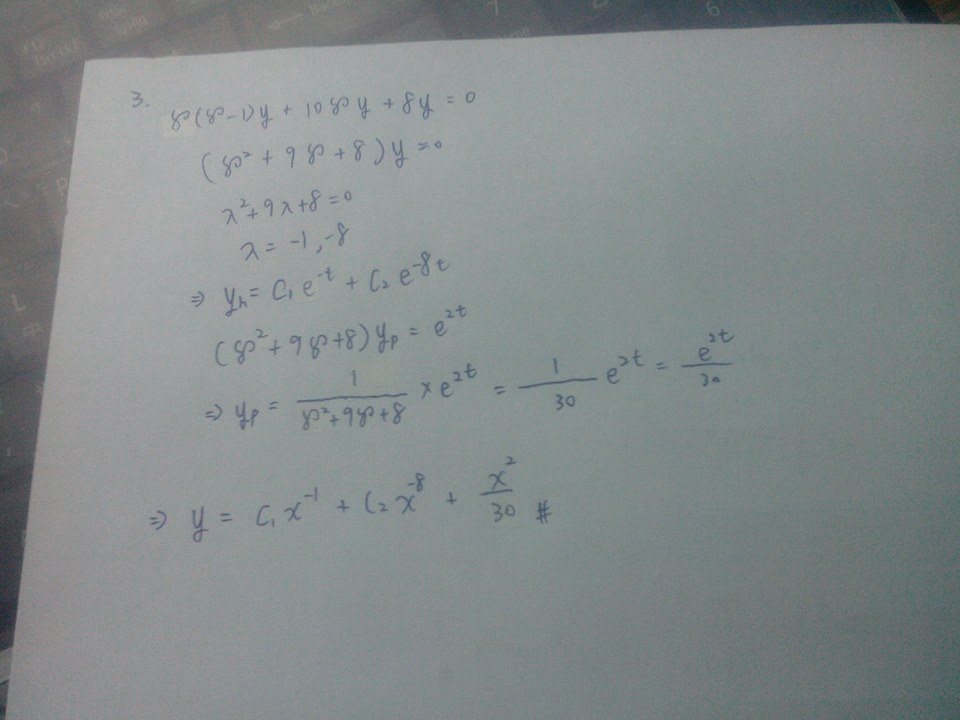 3. ℘(℘-1)y + 10℘y + 8y = 0
(℘² + 9℘ + 8)y = 0
λ² + 9λ + 8 = 0
λ = -1, -8
⇒ yₕ = C₁e^{-t} + C₂e^{-8t}
(℘² + 9℘ + 8)yₚ = e^{2t}
⇒ yₚ = 1/(℘² + 9℘ + 8) × e^{2t} = 1/30 e^{2t} = e^{2t}/30
⇒ y = C₁x^{-1} + C₂x^{-8} + x²/30 #